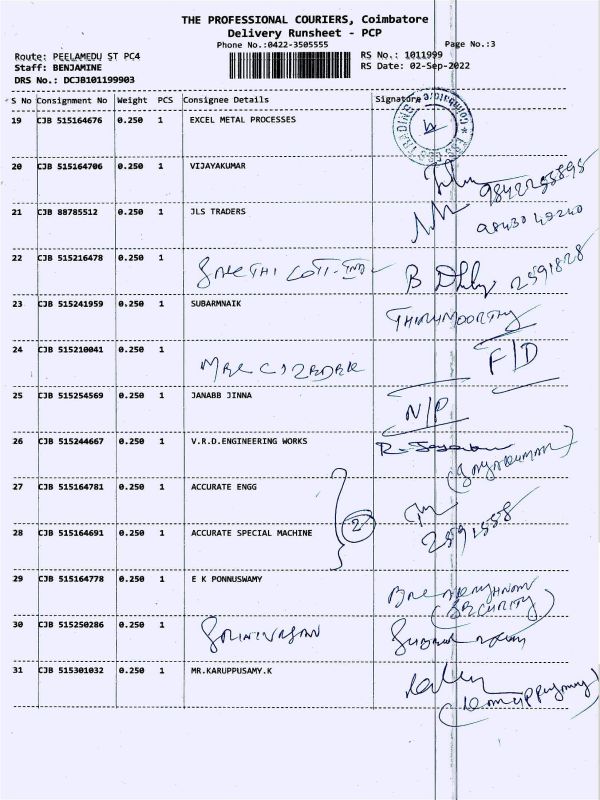 THE PROFESSIONAL COURIERS, Coimbatore
Delivery Runsheet - PCP
Phone No.:0422-3505555
Page No.:3
Route: PEELAMEDU ST PC4
RS No.: 1011999
Staff: BENJAMINE
RS Date: 02-Sep-2022
DRS No.: DCJB101199903
S No Consignment No Weight PCS Consignee Details Signature
19 CJB 515164676 0.250 1 EXCEL METAL PROCESSES
20 CJB 515164706 0.250 1 VIJAYAKUMAR
9842255895
21 CJB 88785512 0.250 1 JLS TRADERS
98430 49240
22 CJB 515216478 0.250 1
2591828
23 CJB 515241959 0.250 1 SUBARMNAIK
THIRUMOORTHY
24 CJB 515210041 0.250 1
F/D
25 CJB 515254569 0.250 1 JANABB JINNA
N/P
26 CJB 515244667 0.250 1 V.R.D.ENGINEERING WORKS
(Jayakumar)
27 CJB 515164781 0.250 1 ACCURATE ENGG
2
28 CJB 515164691 0.250 1 ACCURATE SPECIAL MACHINE
2591558
29 CJB 515164778 0.250 1 E K PONNUSWAMY
(SECURITY)
30 CJB 515250286 0.250 1 SRINIVASAN
31 CJB 515301032 0.250 1 MR.KARUPPUSAMY.K
(Karuppusamy)